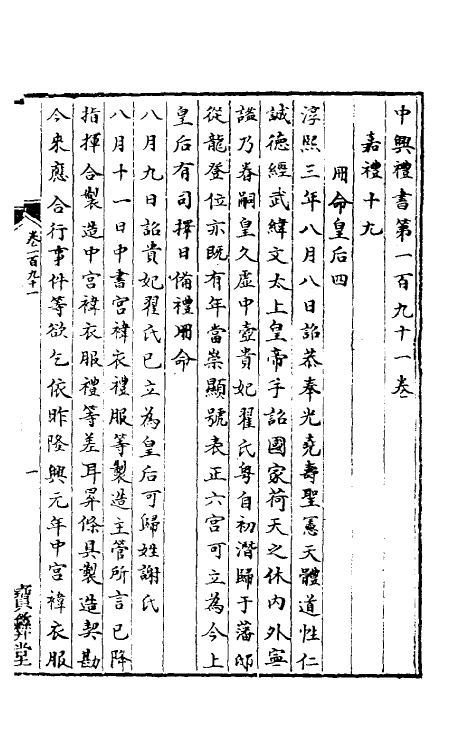 中興禮書第一百九十一卷
嘉禮十九
冊命皇后四
淳熙三年八月八日詔恭奉光堯壽聖憲天體道性仁
誠德經武緯文太上皇帝手詔國家荷天之休内外寧
謐乃眷嗣皇久虛中壼貴妃翟氏粤自初潛歸于藩邸
從龍登位亦既有年當崇顯號表正六宮可立為今上
皇后有司擇日備禮冊命
八月九日詔貴妃翟氏已立為皇后可歸姓謝氏
八月十一日中書宮褘衣禮服等製造主管所言已降
指揮合製造中宮褘衣服禮等差耳昇條具製造契勘
今來應合行事件等欲乞依昨隆興元年中宮褘衣服
卷一百九十一
一
寶彝堂